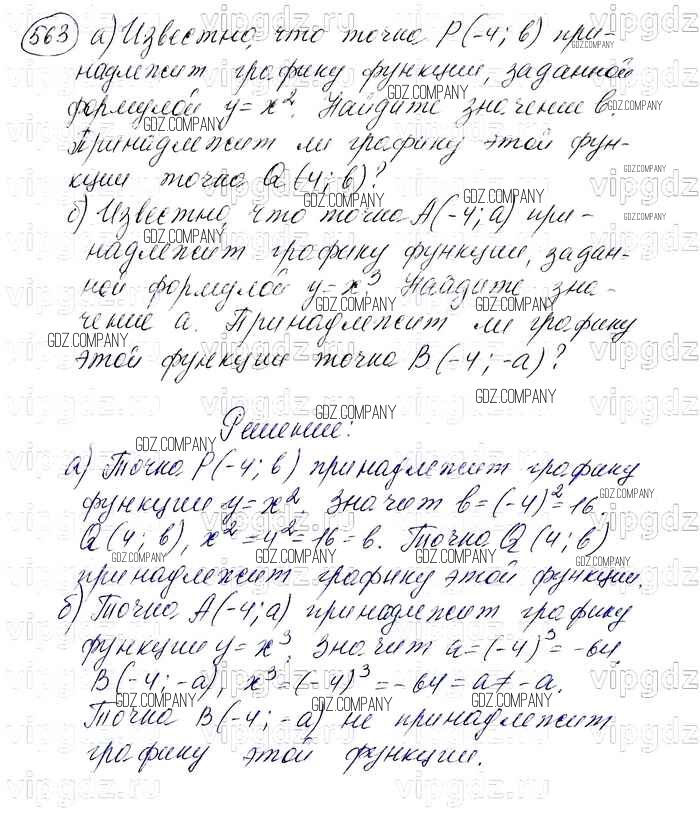 563 а) Известно, что точка P(-4; b) при-
надлежит графику функции, заданной
формулой y=x². Найдите значение b.
Принадлежит ли графику этой фун-
кции точка Q(4; b)?
б) Известно, что точка A(-4; a) при-
надлежит графику функции, задан-
ной формулой y=x³. Найдите зна-
чение a. Принадлежит ли графику
этой функции точка B(-4; -a)?
Решение:
а) Точка P(-4; b) принадлежит графику
функции y=x². Значит b=(-4)²=16.
Q(4; b), x²=4²=16=b. Точка Q(4; b)
принадлежит графику этой функции.
б) Точка A(-4; a) принадлежит графику
функции y=x³. Значит a=(-4)³=-64.
B(-4; -a), x³=(-4)³=-64=a≠-a.
Точка B(-4; -a) не принадлежит
графику этой функции.